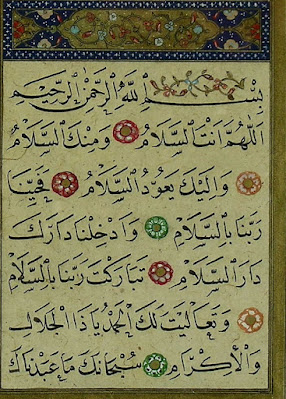 بِسْمِ اللّٰهِ الرَّحْمٰنِ الرَّحِيمِ
اَللّٰهُمَّ اَنْتَ السَّلَامُ وَمِنْكَ السَّلَامُ
وَاِلَيْكَ يَعُودُ السَّلَامُ فَحَيِّنَا
رَبَّنَا بِالسَّلَامِ وَاَدْخِلْنَا دَارَكَ
دَارَ السَّلَامِ تَبَارَكْتَ رَبَّنَا بِالسَّلَامِ
وَتَعَالَيْتَ لَكَ الْحَمْدُ يَاذَا الْجَلَالِ
وَالْاِكْرَامِ سُبْحَانَكَ مَا عَبَدْنَاكَ